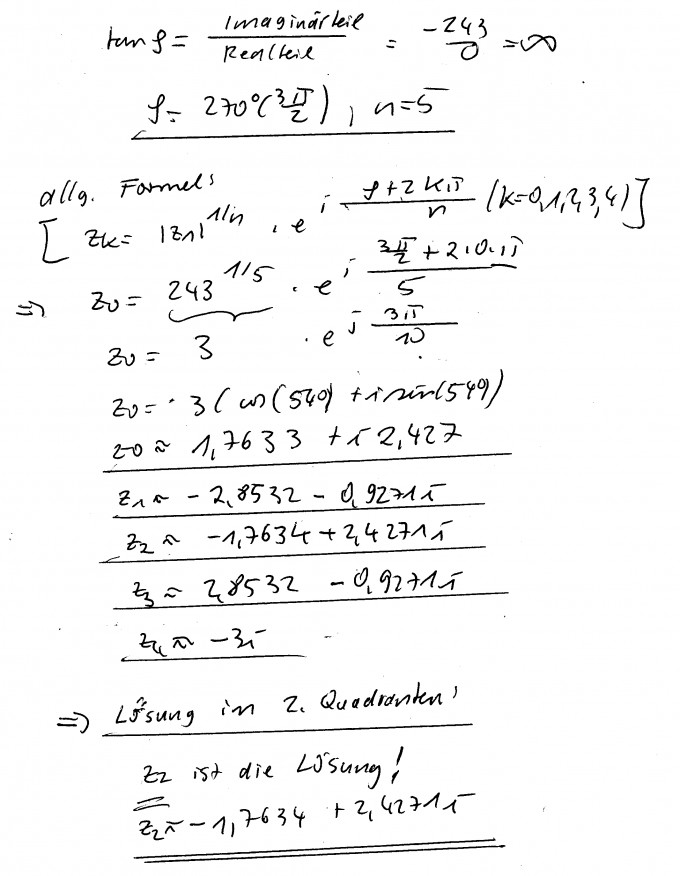 tan φ = Imaginärteil / Realteil = -243 / 0 = ∞
φ = 270° (3π/2), n=5
allg. Formel:
[ zk = |z1|^1/n · e^i (φ+2kπ)/n (k=0,1,2,3,4) ]
⇒ z0 = 243^1/5 · e^i (3π/2 + 2·0·π)/5
z0 = 3 · e^i 3π/10
z0 = 3 (cos(54°) + i sin(54°)
z0 ≈ 1,7633 + i 2,427
z1 ≈ -2,8532 - 0,9271i
z2 ≈ -1,7634 + 2,4271i
z3 ≈ 2,8532 - 0,9271i
z4 ≈ -3i
⇒ Lösung im 2. Quadranten:
z2 ist die Lösung!
z2 ≈ -1,7634 + 2,4271i